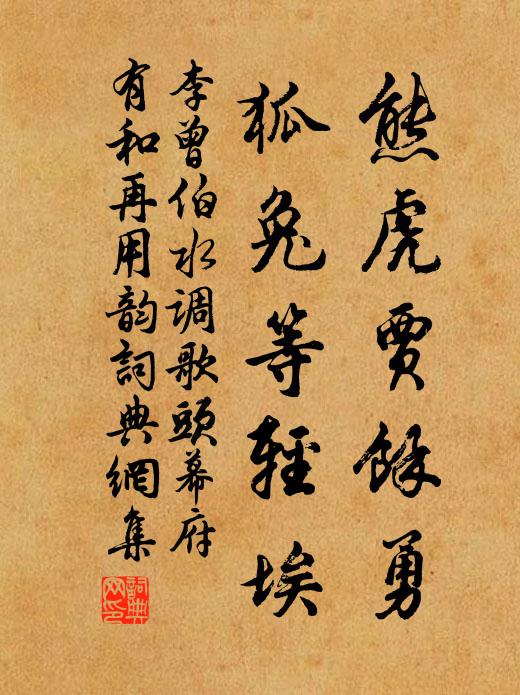 熊虎賈餘勇
狐兔等輕埃
李曾伯水调歌頭幕府
有和再用韵詞典網集
詞典网印